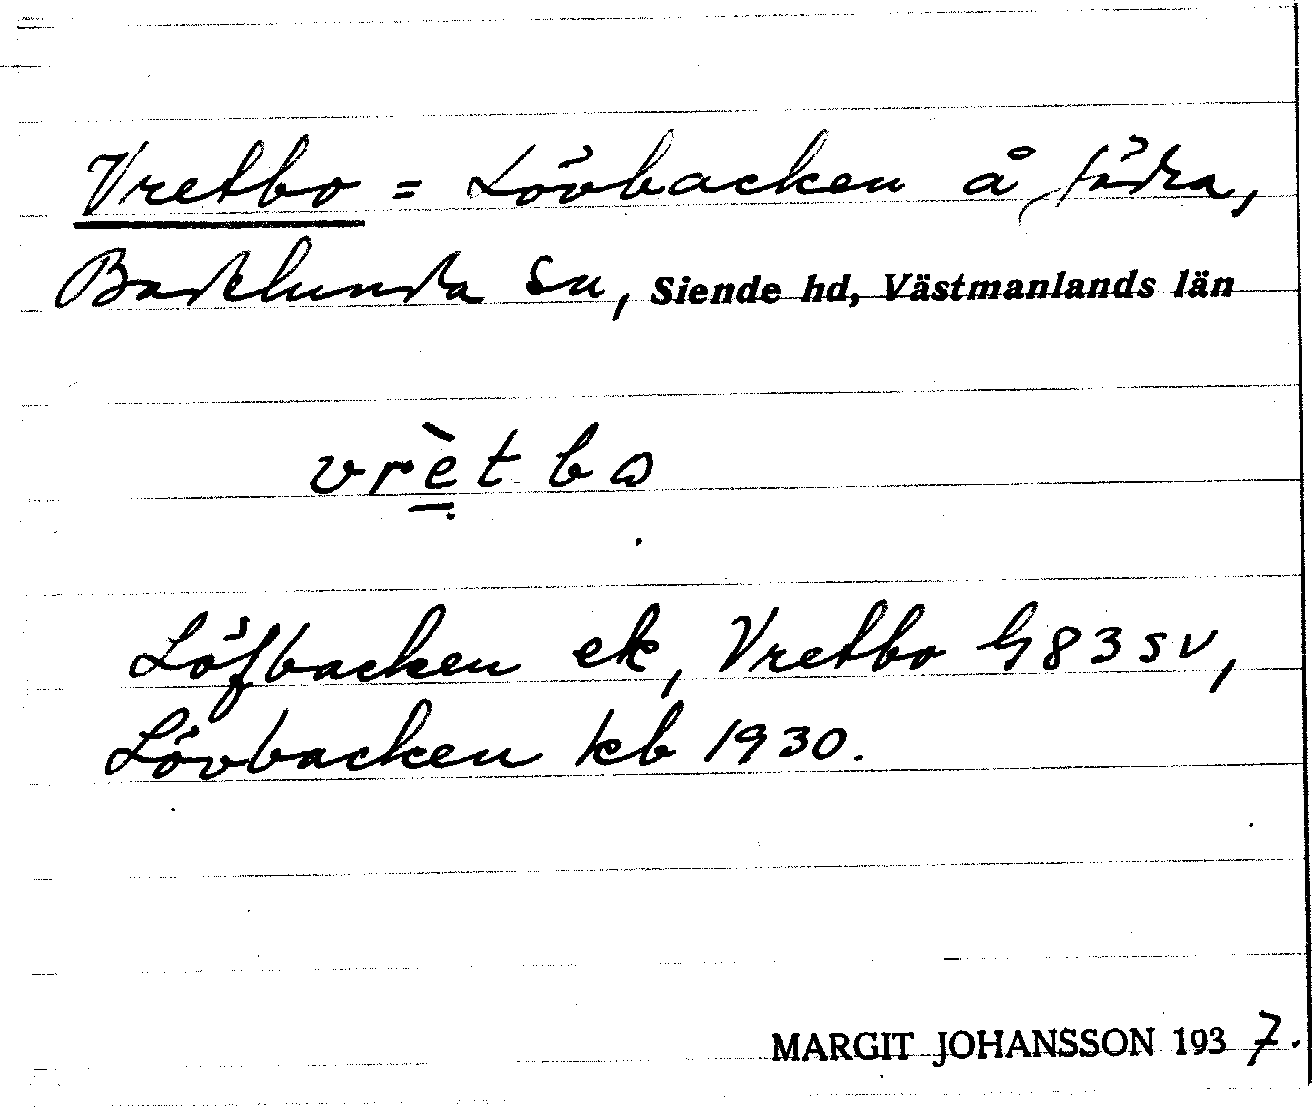 Vretbo = Lövbacken å Jädra,
Badelunda Sn, Siende hd, Västmanlands län
vrètbω
Löfbacken ek, Vretbo G 83 SV,
Lövbacken kb 1930.
MARGIT JOHANSSON 1937.